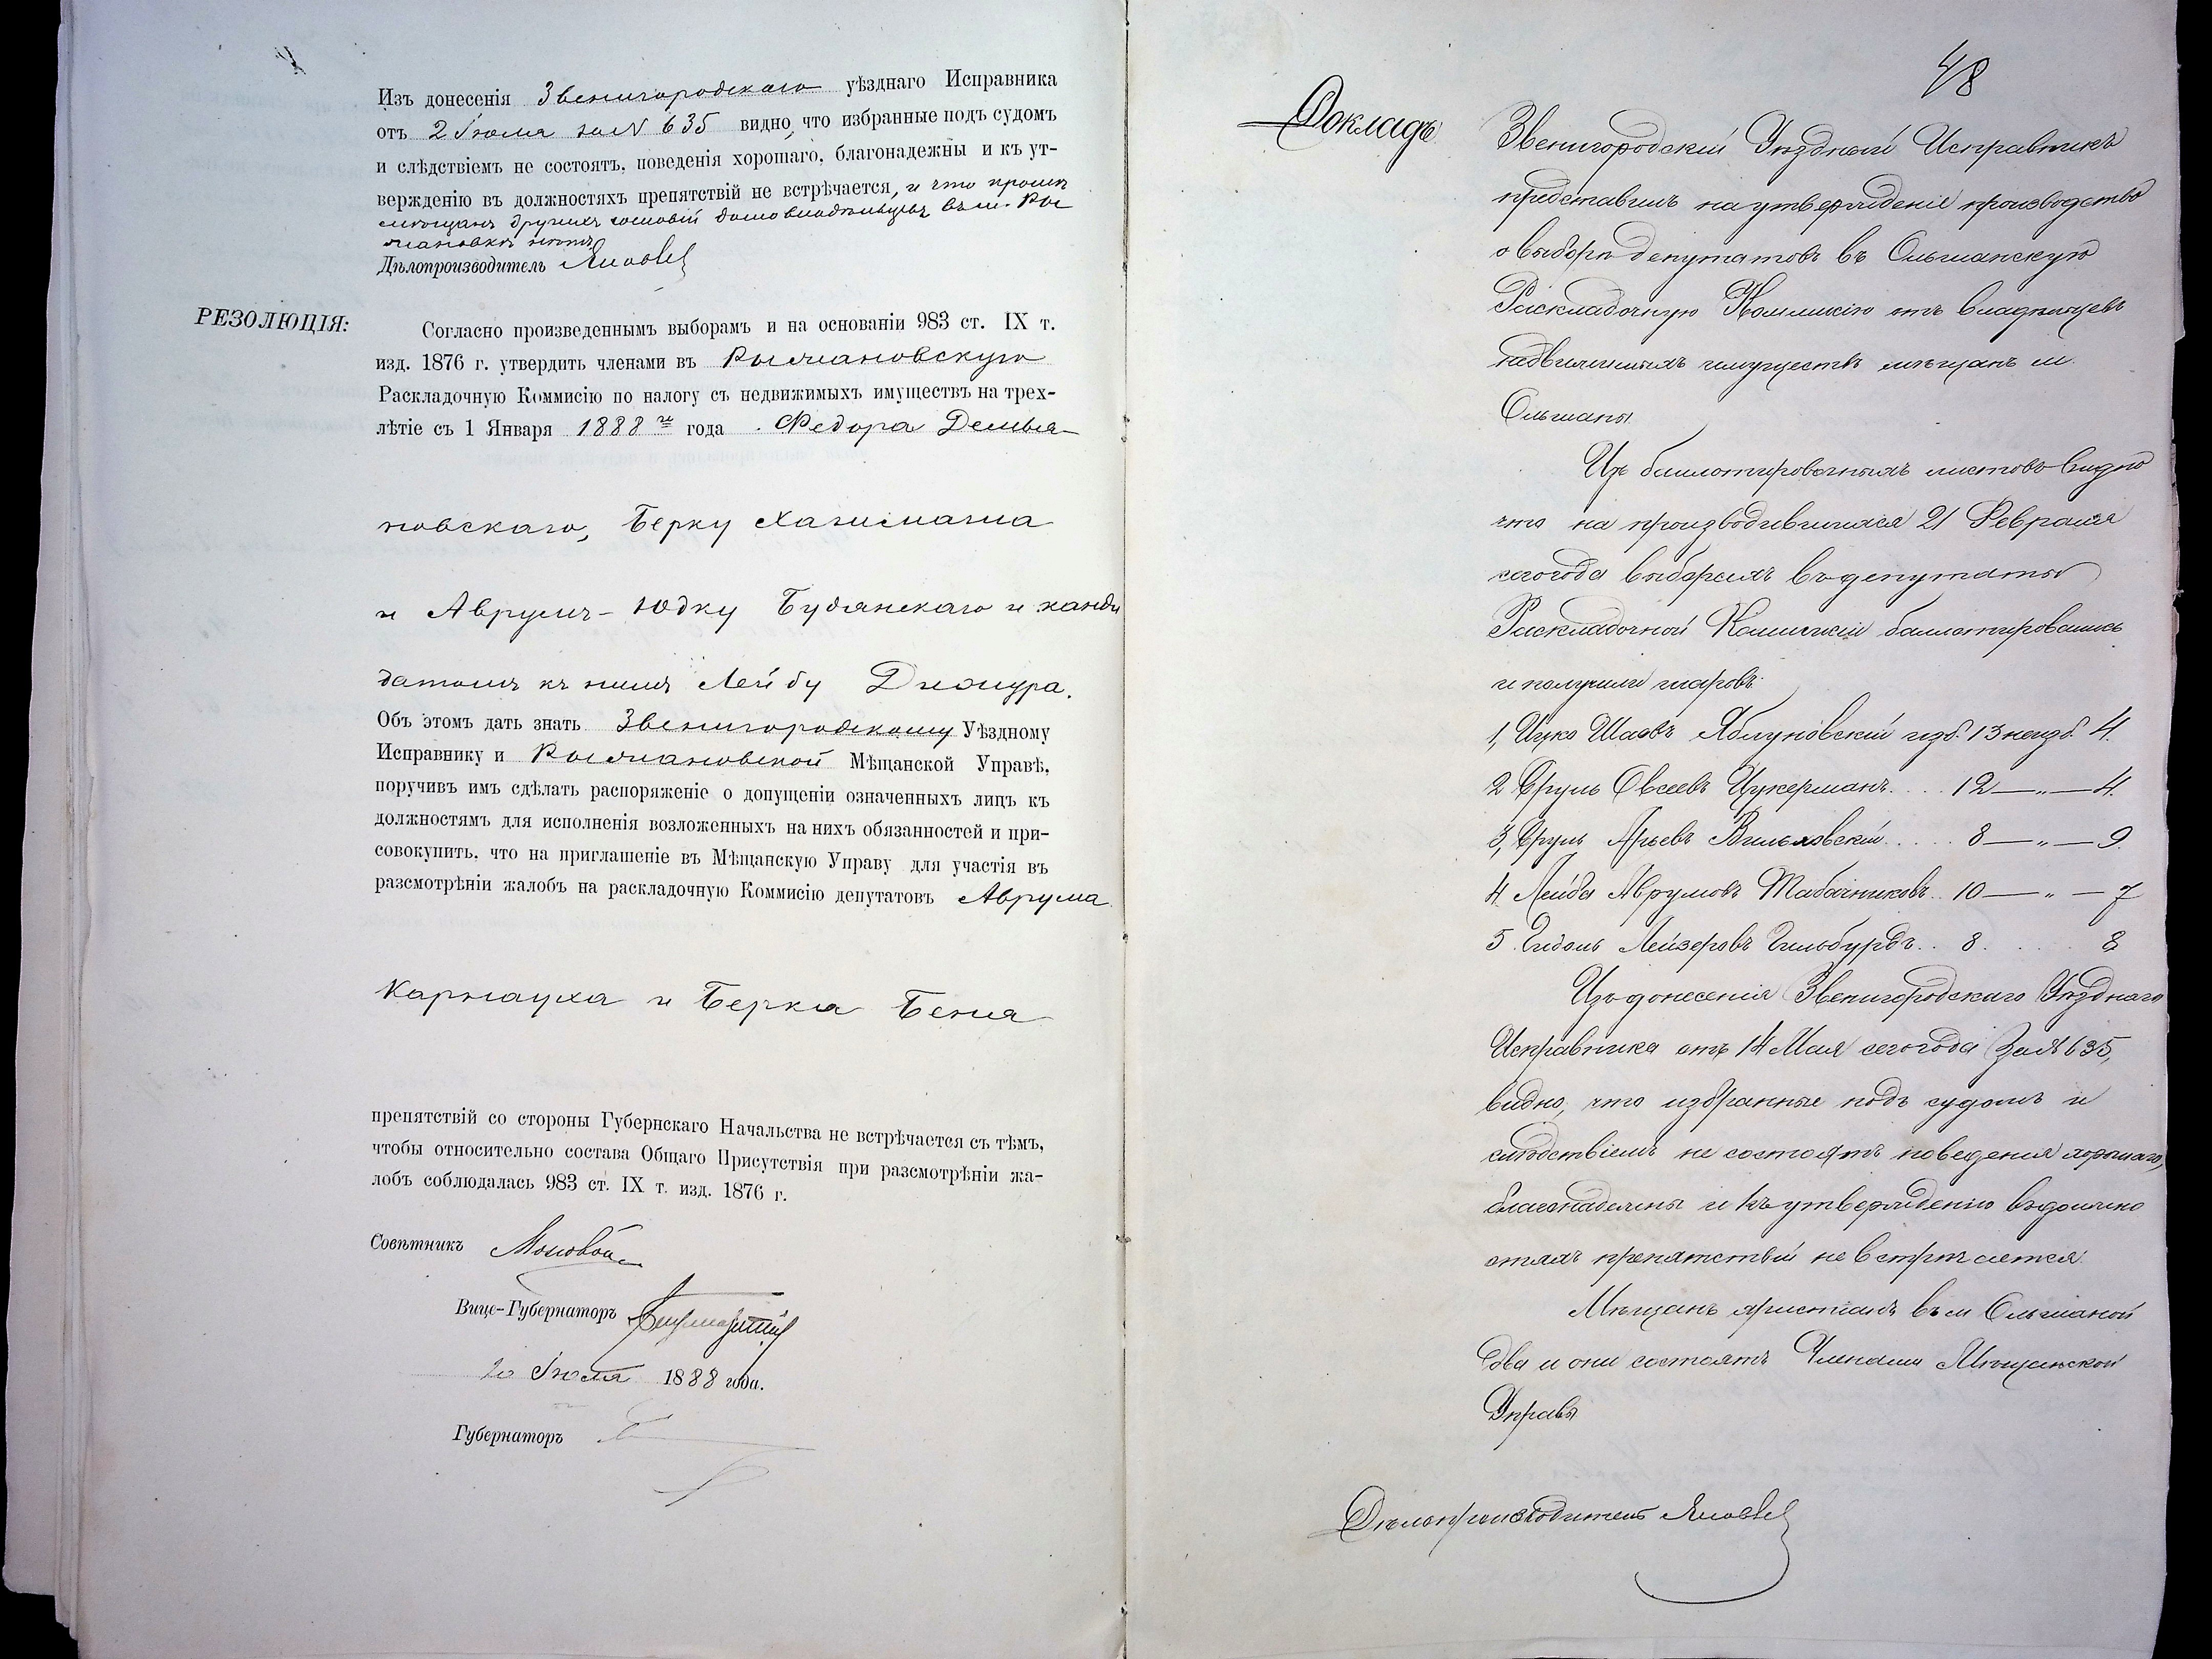 Изъ донесенія Звенигородскаго уѣзднаго Исправника
отъ 2 Іюля за № 635 видно, что избранные подъ судомъ
и слѣдствіемъ не состоятъ, поведенія хорошаго, благонадежны и къ ут-
вержденію въ должностяхъ препятствій не встрѣчается, и что кромѣ
мѣщанъ другихъ сословій домовладѣльцевъ въ м. Ры
жановкѣ нѣтъ.
Дѣлопроизводитель
РЕЗОЛЮЦІЯ:
Согласно произведеннымъ выборамъ и на основаніи 983 ст. IX т.
изд. 1876 г. утвердить членами въ Рыжановскую
Раскладочную Коммисію по налогу съ недвижимыхъ имуществъ на трех-
лѣтіе съ 1 Января 1888 го года Федора Демья-
новскаго, Берку
и Аврумъ-Юдку Будянскаго и канди
датомъ къ нимъ Лейбу
Объ этомъ дать знать Звенигородскому Уѣздному
Исправнику и Рыжановской Мѣщанской Управѣ,
поручивъ имъ сдѣлать распоряженіе о допущеніи означенныхъ лицъ къ
должностямъ для исполненія возложенныхъ на нихъ обязанностей и при-
совокупить, что на приглашеніе въ Мѣщанскую Управу для участія въ
разсмотрѣніи жалобъ на раскладочную Коммисію депутатовъ Аврума
Карнауха и Берка Беня
препятствій со стороны Губернскаго Начальства не встрѣчается съ тѣмъ,
чтобы относительно состава Общаго Присутствія при разсмотрѣніи жа-
лобъ соблюдалась 983 ст. IX т. изд. 1876 г.
Совѣтникъ
Вице-Губернаторъ
20 Іюля 1888 года.
Губернаторъ
48
Докладъ
Звенигородскій Уѣздный Исправникъ
представилъ на утвержденіе производство
о выборѣ депутатовъ въ Ольшанскую
Раскладочную Коммисію отъ владѣльцевъ
недвижимыхъ имуществъ мѣщанъ м.
Ольшаны.
Изъ баллотировочныхъ листовъ видно
что на производившихся 21 Февраля
сего года выборахъ въ депутаты
Раскладочной Комисіи баллотировались
и получили шаровъ:
1, Ицко Шаевъ Яблуновскій изб. 13 неизб. 4.
2 Сруль Овсеевъ Цукерманъ .... 12 — „ — 4.
3, Сруль Арьевъ Вильховскій ..... 8 — „ — 9.
4. Лейба Аврумовъ Табачниковъ .. 10 — „ — 7
5. Гидаль Лейзеровъ Гильбурдъ .. 8 .... 8
Изъ донесенія Звенигородскаго Уѣзднаго
Исправника отъ 14 Мая сего года за № 635,
видно, что избранные подъ судомъ и
слѣдствіемъ не состоятъ поведенія хорошаго,
благонадежны и къ утвержденію въ должно
стяхъ препятствій не встрѣчается.
Мѣщанъ христіанъ въ м Ольшаной
два и они состоятъ Членами Мѣщанской
Управы
Дѣлопроизводитель